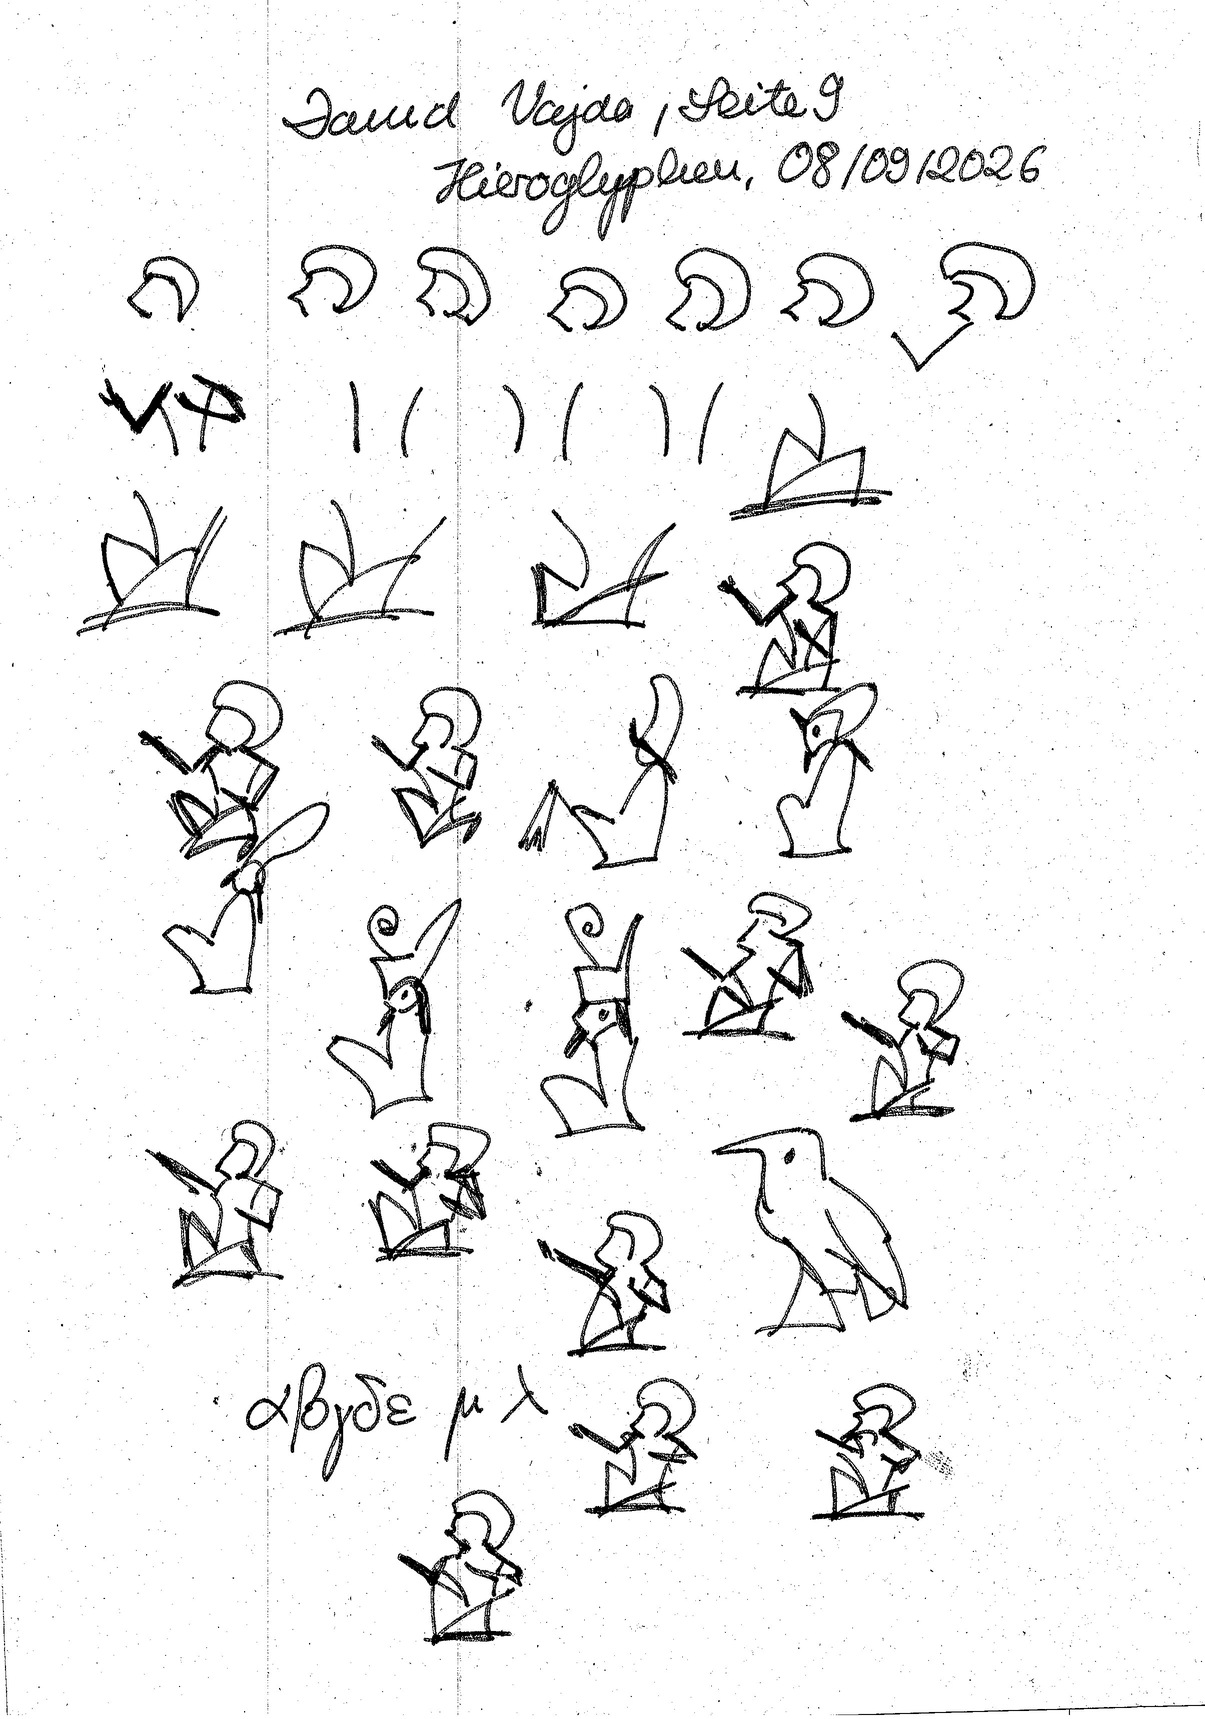 David Vajda, Seite 9
Hieroglyphen, 08/09/2026
αβγδε μ λ